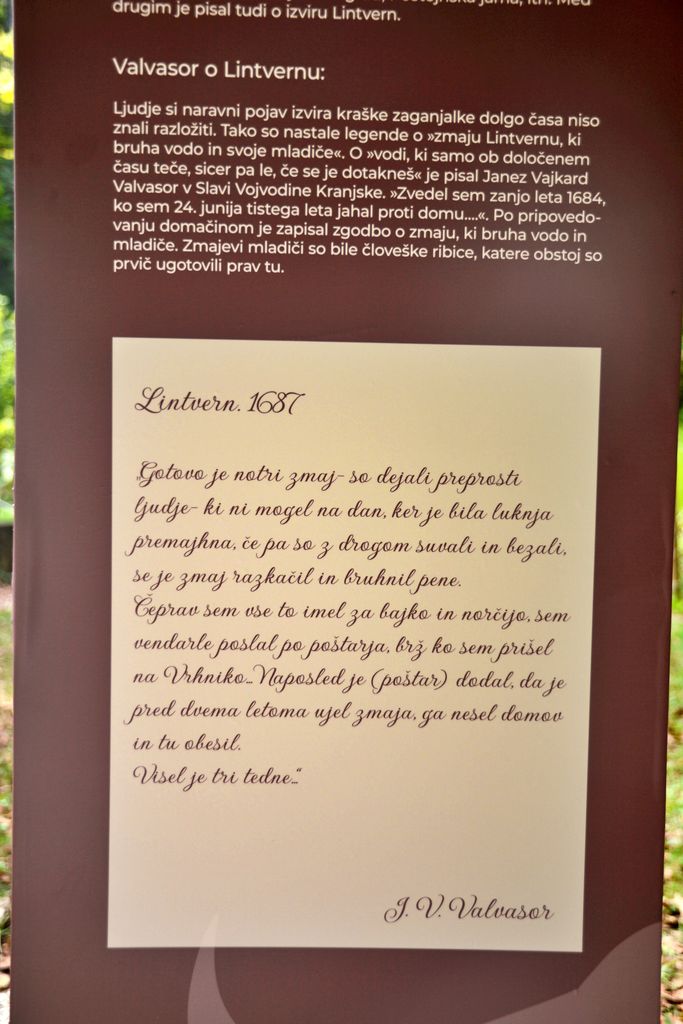 drugim je pisal tudi o izviru Lintvern.
Valvasor o Lintvernu:
Ljudje si naravni pojav izvira kraške zaganjalke dolgo časa niso
znali razložiti. Tako so nastale legende o »zmaju Lintvernu, ki
bruha vodo in svoje mladiče«. O »vodi, ki samo ob določenem
času teče, sicer pa le, če se je dotakneš« je pisal Janez Vajkard
Valvasor v Slavi Vojvodine Kranjske. »Zvedel sem zanjo leta 1684,
ko sem 24. junija tistega leta jahal proti domu....«. Po pripovedo-
vanju domačinom je zapisal zgodbo o zmaju, ki bruha vodo in
mladiče. Zmajevi mladiči so bile človeške ribice, katere obstoj so
prvič ugotovili prav tu.
Lintvern. 1687
„Gotovo je notri zmaj- so dejali preprosti
ljudje- ki ni mogel na dan, ker je bila luknja
premajhna, če pa so z drogom suvali in bezali,
se je zmaj razkačil in bruhnil pene.
Čeprav sem vse to imel za bajko in norčijo, sem
vendarle poslal po poštarja, brž ko sem prišel
na Vrhniko...Naposled je (poštar) dodal, da je
pred dvema letoma ujel zmaja, ga nesel domov
in tu obesil.
Visel je tri tedne...“
J. V. Valvasor